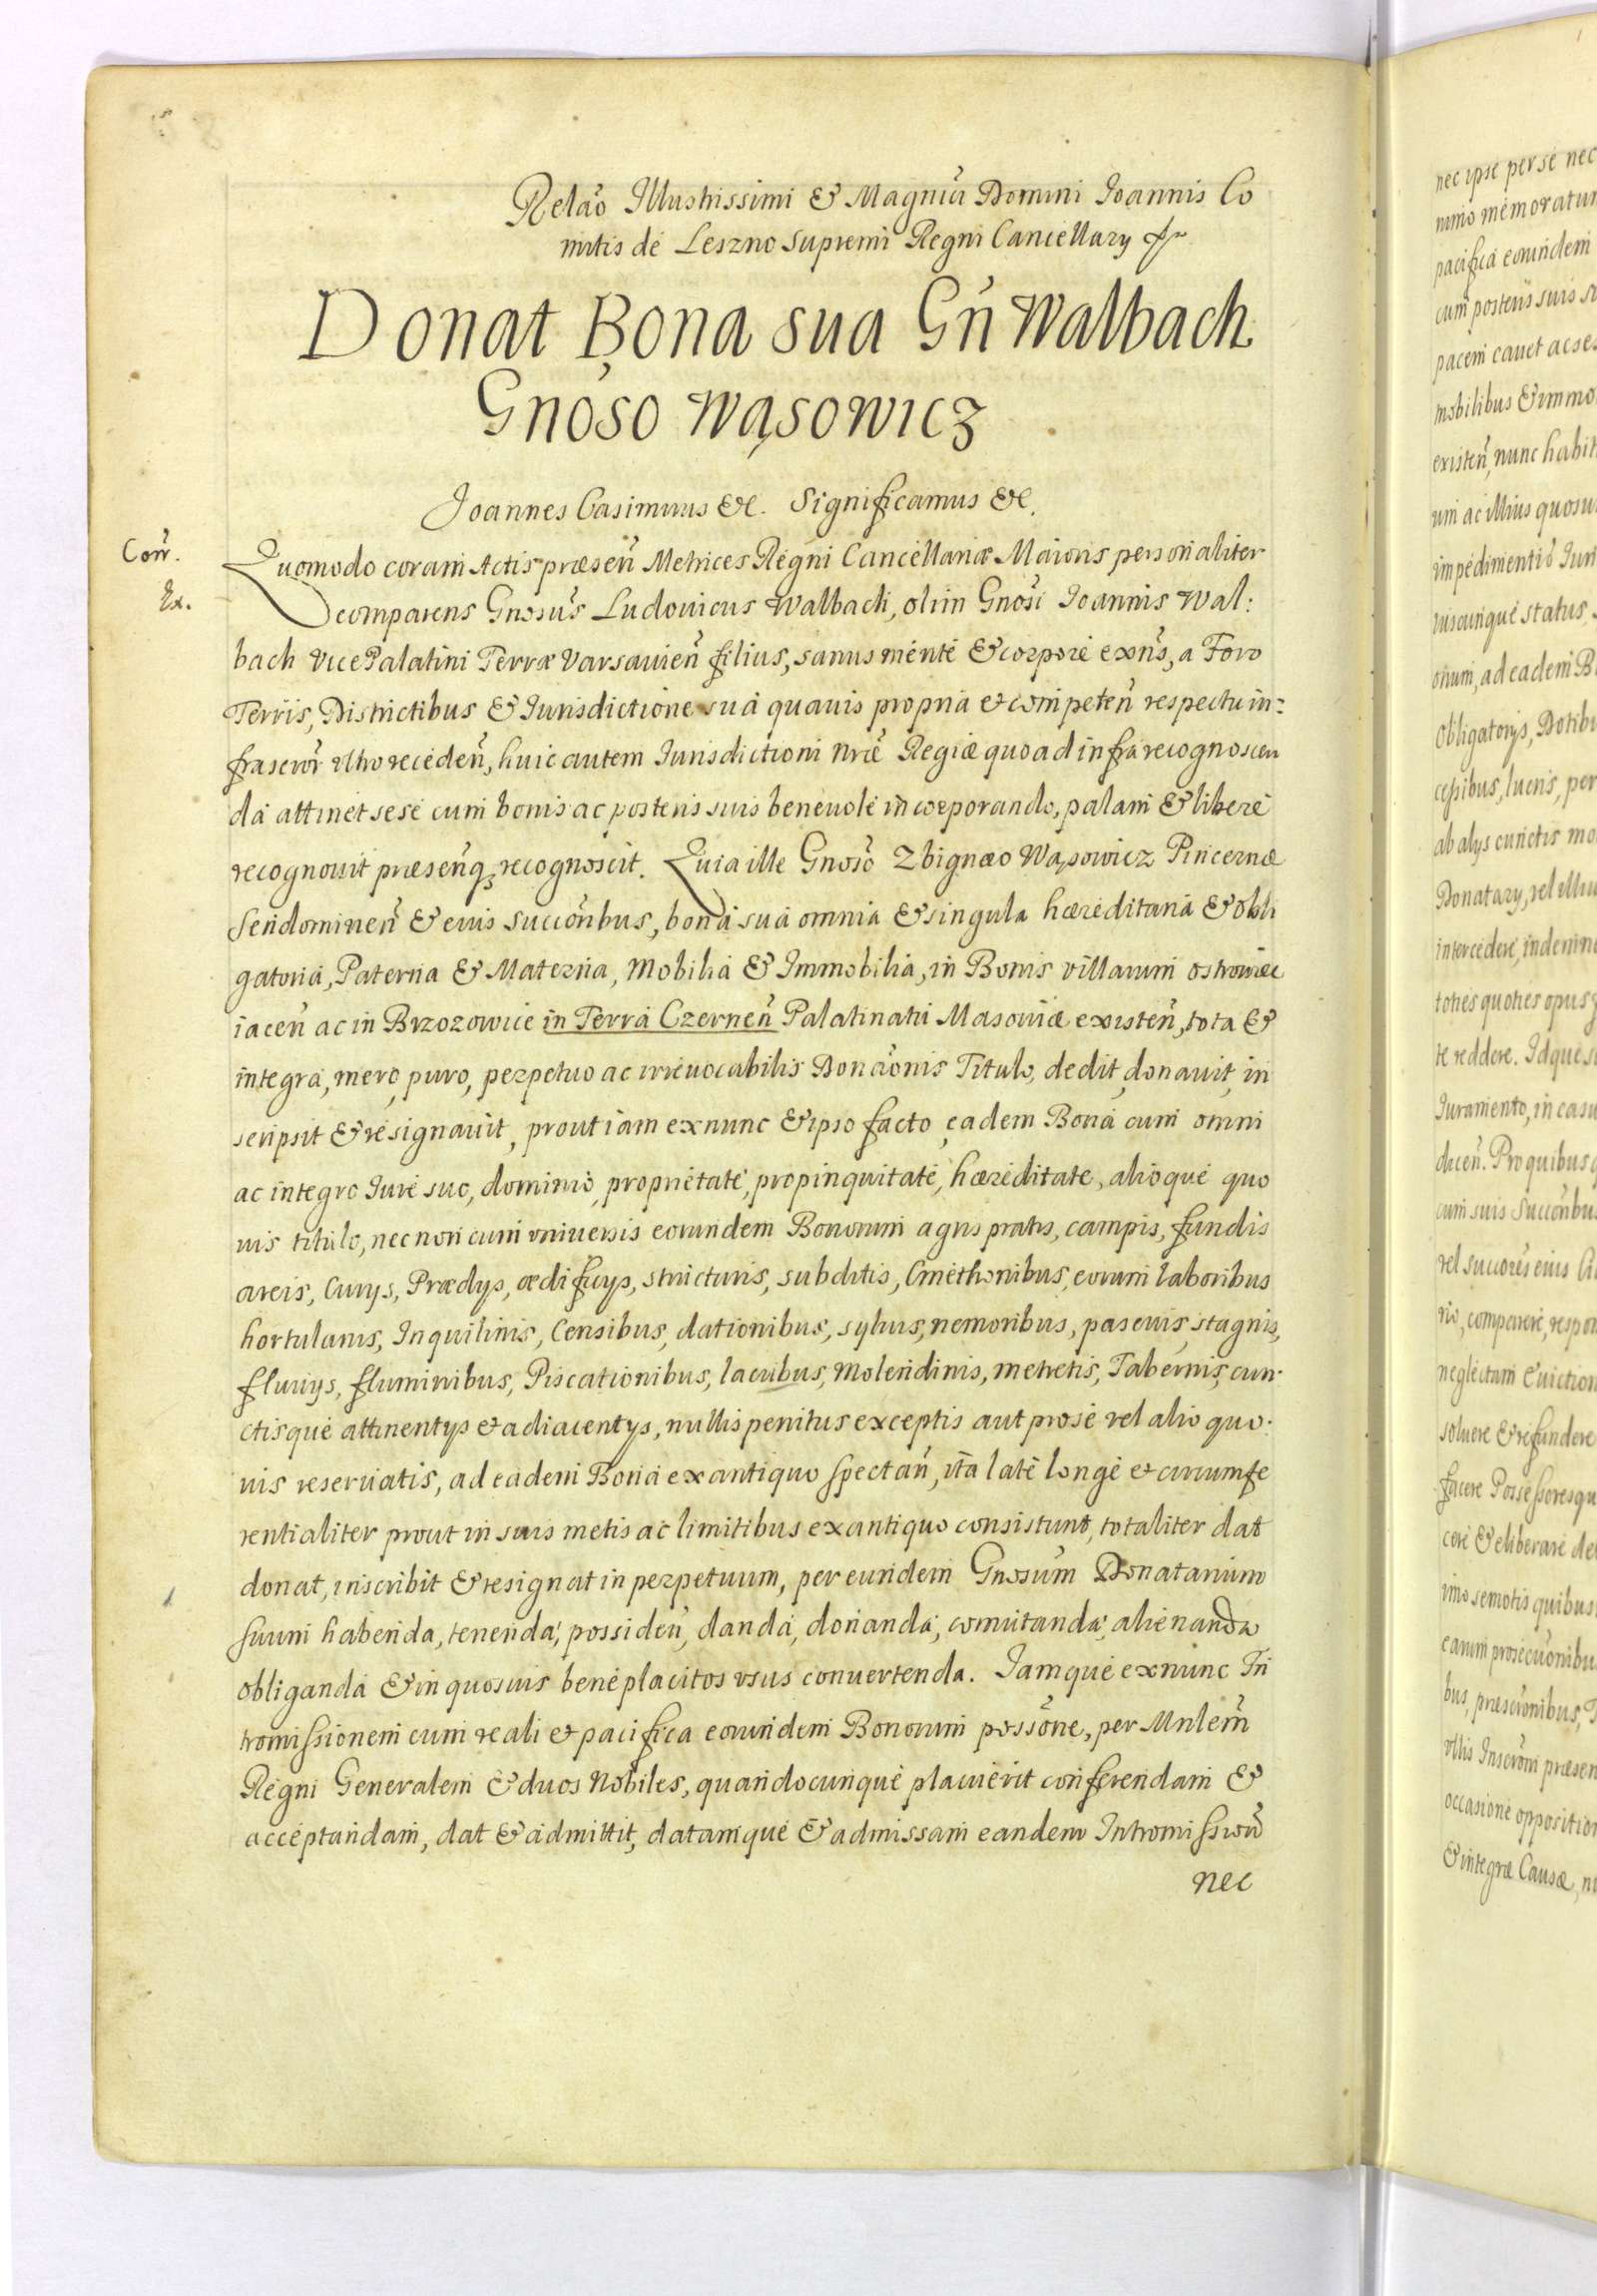 Relaõ Illustrissimi & Magnici Domini Joannis Co
mitis de Leszno Supremi Regni Cancellarÿ
Donat Bona sua Gñ Walbach
Gnoso Wąsowicz
Joannes Casimirus &c. Significamus &c.
Corr.
Ex.
Quomodo coram Actis præseñ Metrices Regni Cancellariæ Maioris personaliter
comparens Gnosus Ludovicus Walbach, olim Gnosi Joannis Wal:
bach vice Palatini Terræ Varsavieñ filius, sanus mente & corpore exñs, a Foro
Terris, Districtibus & Jurisdictione sua quavis propria et competeñ respectu in:
frascror̃ ultro recedeñ, huic autem Jurisdictioni nrãe Regiæ quo ad infra recognoscen
da attinet sese cum bonis ac posteris suis benevole incorporando, palam & libere
recognovit præsenq₃ recognoscit. Quia ille Gnoso Zbignæo Wąsowicz Pincernæ
Sendomireñ & eius succoribus, bona sua omnia & singula hæreditaria & obli
gatoria, Paterna & Materna, Mobilia & Immobilia, in Bonis villarum Ostrowiec
iaceñ ac in Brzozowice in Terra Czerneñ Palatinatu Masoviæ existeñ, tota &
integra, mero, puro, perpetuo ac irrevocabilis Donaõnis Titulo, dedit, donavit, in
scripsit & resignavit, prout iam exnunc & ipso facto eadem Bona cum omni
ac integro Jure suo, dominio, proprietate, propinquitate, hæreditate, alioque quo
vis titulo, nec non cum universis eorundem Bonorum agris pratis, campis, fundis
areis, Curÿs, Prædÿs, ædificÿs, structuris, subditis, Cmethonibus, eorum laboribus
hortulanis, Inquilinis, Censibus, dationibus, sylvis, nemoribus, pascuis, stagnis,
fluvÿs, fluminibus, Piscationibus, lacubus, Molendinis, metretis, Tabernis, cun-
ctisque attinentÿs et adiacentÿs, nullis penitus exceptis aut pro se vel alio quo-
vis reservatis, ad eadem Bona ex antiquo spectañ, ita late longe et circumfe
rentialiter prout in suis metis ac limitibus ex antiquo consistunt, totaliter dat
donat, inscribit & resignat in perpetuum, per eundem Gnosum Donatarium
suum habenda, tenenda, possideñ, danda, donanda, comutanda, alienanda
obliganda & in quosvis beneplacitos usus convertenda. Jamque exnunc In
tromissionem cum reali et pacifica eorundem Bonorum possõne, per Mnlem̃
Regni Generalem & duos Nobiles, quandocunque placuerit conferendam &
acceptandam, dat & admittit, datamque & admissam eandem Intromissioñ
nec
nec ipse per se nec
pacifica eorundem
cum posteris suis
pacem cavet ac se
mobilibus & immo
existeñ, nunc habit
um ac illius quosv
impedimentis Juri
viscunque status
onum, ad eadem B
Obligatorÿs, Dotibu
ab alÿs cunctis mo
Donatarÿ, vel illiu
intercedere, indemn
toties quoties opus
te reddere. Idque s
Juramento, in casu
diceñ. Pro quibus
cum suis Succoribu
vel succores eius
rio, comparere, respon
neglectam Eviction
solvere & refundere
facere Possessoresqu
cere & eliberare de
imo semotis quibus
earum prosecuõnibu
bus, præscrõnibus,
ullis Inscrõni præsen
occasione oppositio
& integræ Causæ, n